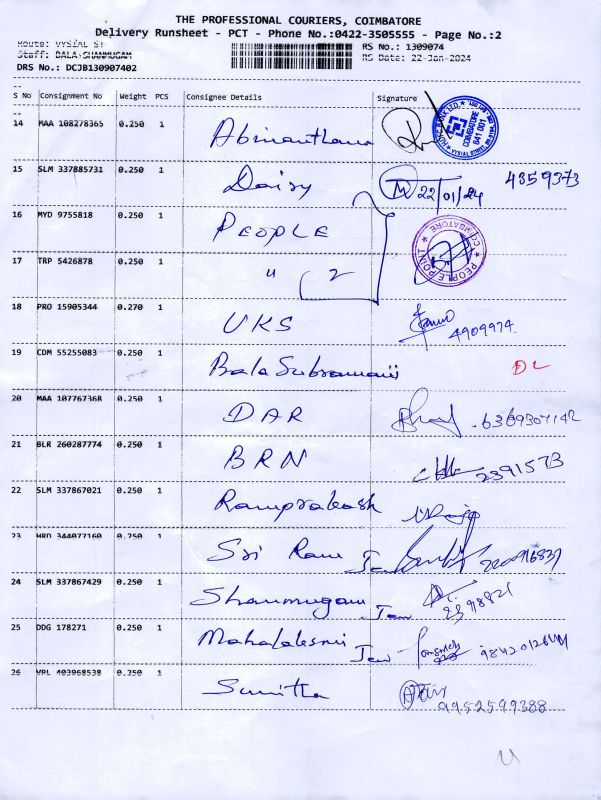 THE PROFESSIONAL COURIERS, COIMBATORE
Delivery Runsheet - PCT - Phone No.:0422-3505555 - Page No.:2
Route: VYSIAL ST
RS No.: 1309074
Staff: BALA SHANMUGAM
RS Date: 22-Jan-2024
DRS No.: DCJB130907402
S No Consignment No Weight PCS Consignee Details Signature
14 MAA 108278365 0.250 1
COIMBATORE 641 001
15 SLM 337885731 0.250 1 Daisy 22/01/24 4359373
16 MYD 9755818 0.250 1 PEOPLE
PEOPLE POINT * COIMBATORE *
17 TRP 5426878 0.250 1 " 2
18 PRO 15905344 0.270 1 UKS 4909974
19 CDM 55255083 0.250 1 Bala Subramani DL
20 MAA 107767368 0.250 1 DAR 6369307142
21 BLR 260287774 0.250 1 BRN 2391573
22 SLM 337867021 0.250 1 Ramprakash
23 344077160 0.250 1 Sri Ram Jew
24 SLM 337867429 0.250 1 Shanmugam Jew
25 DDG 178271 0.250 1 Mahalaksmi Jew
26 VPL 403968538 0.250 1 Sunitha
9952599388